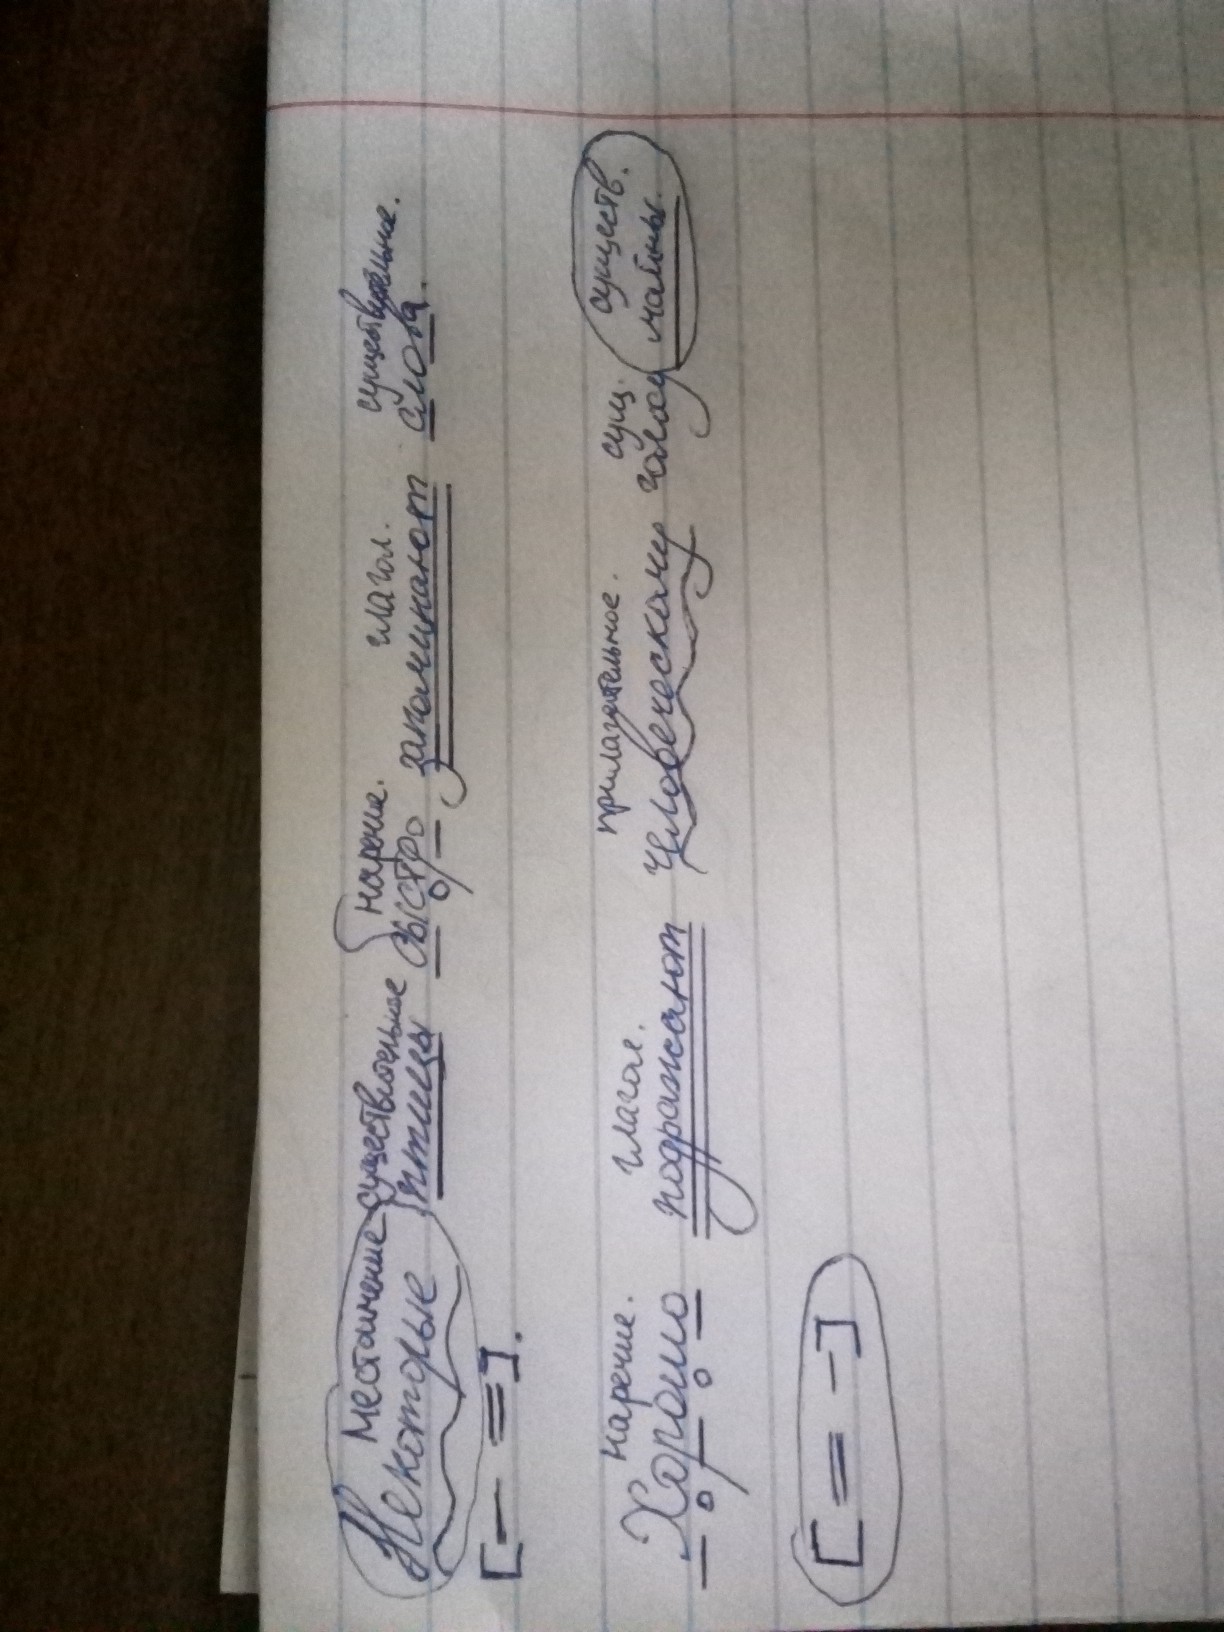 Местоимение существительное наречие. глагол. существительное.
Некоторые птицы быстро запоминают слова.
[— =].
наречие. глагол. прилагательное. сущ. существ.
Хорошо подражают человеческому голосу майны.
[= —]